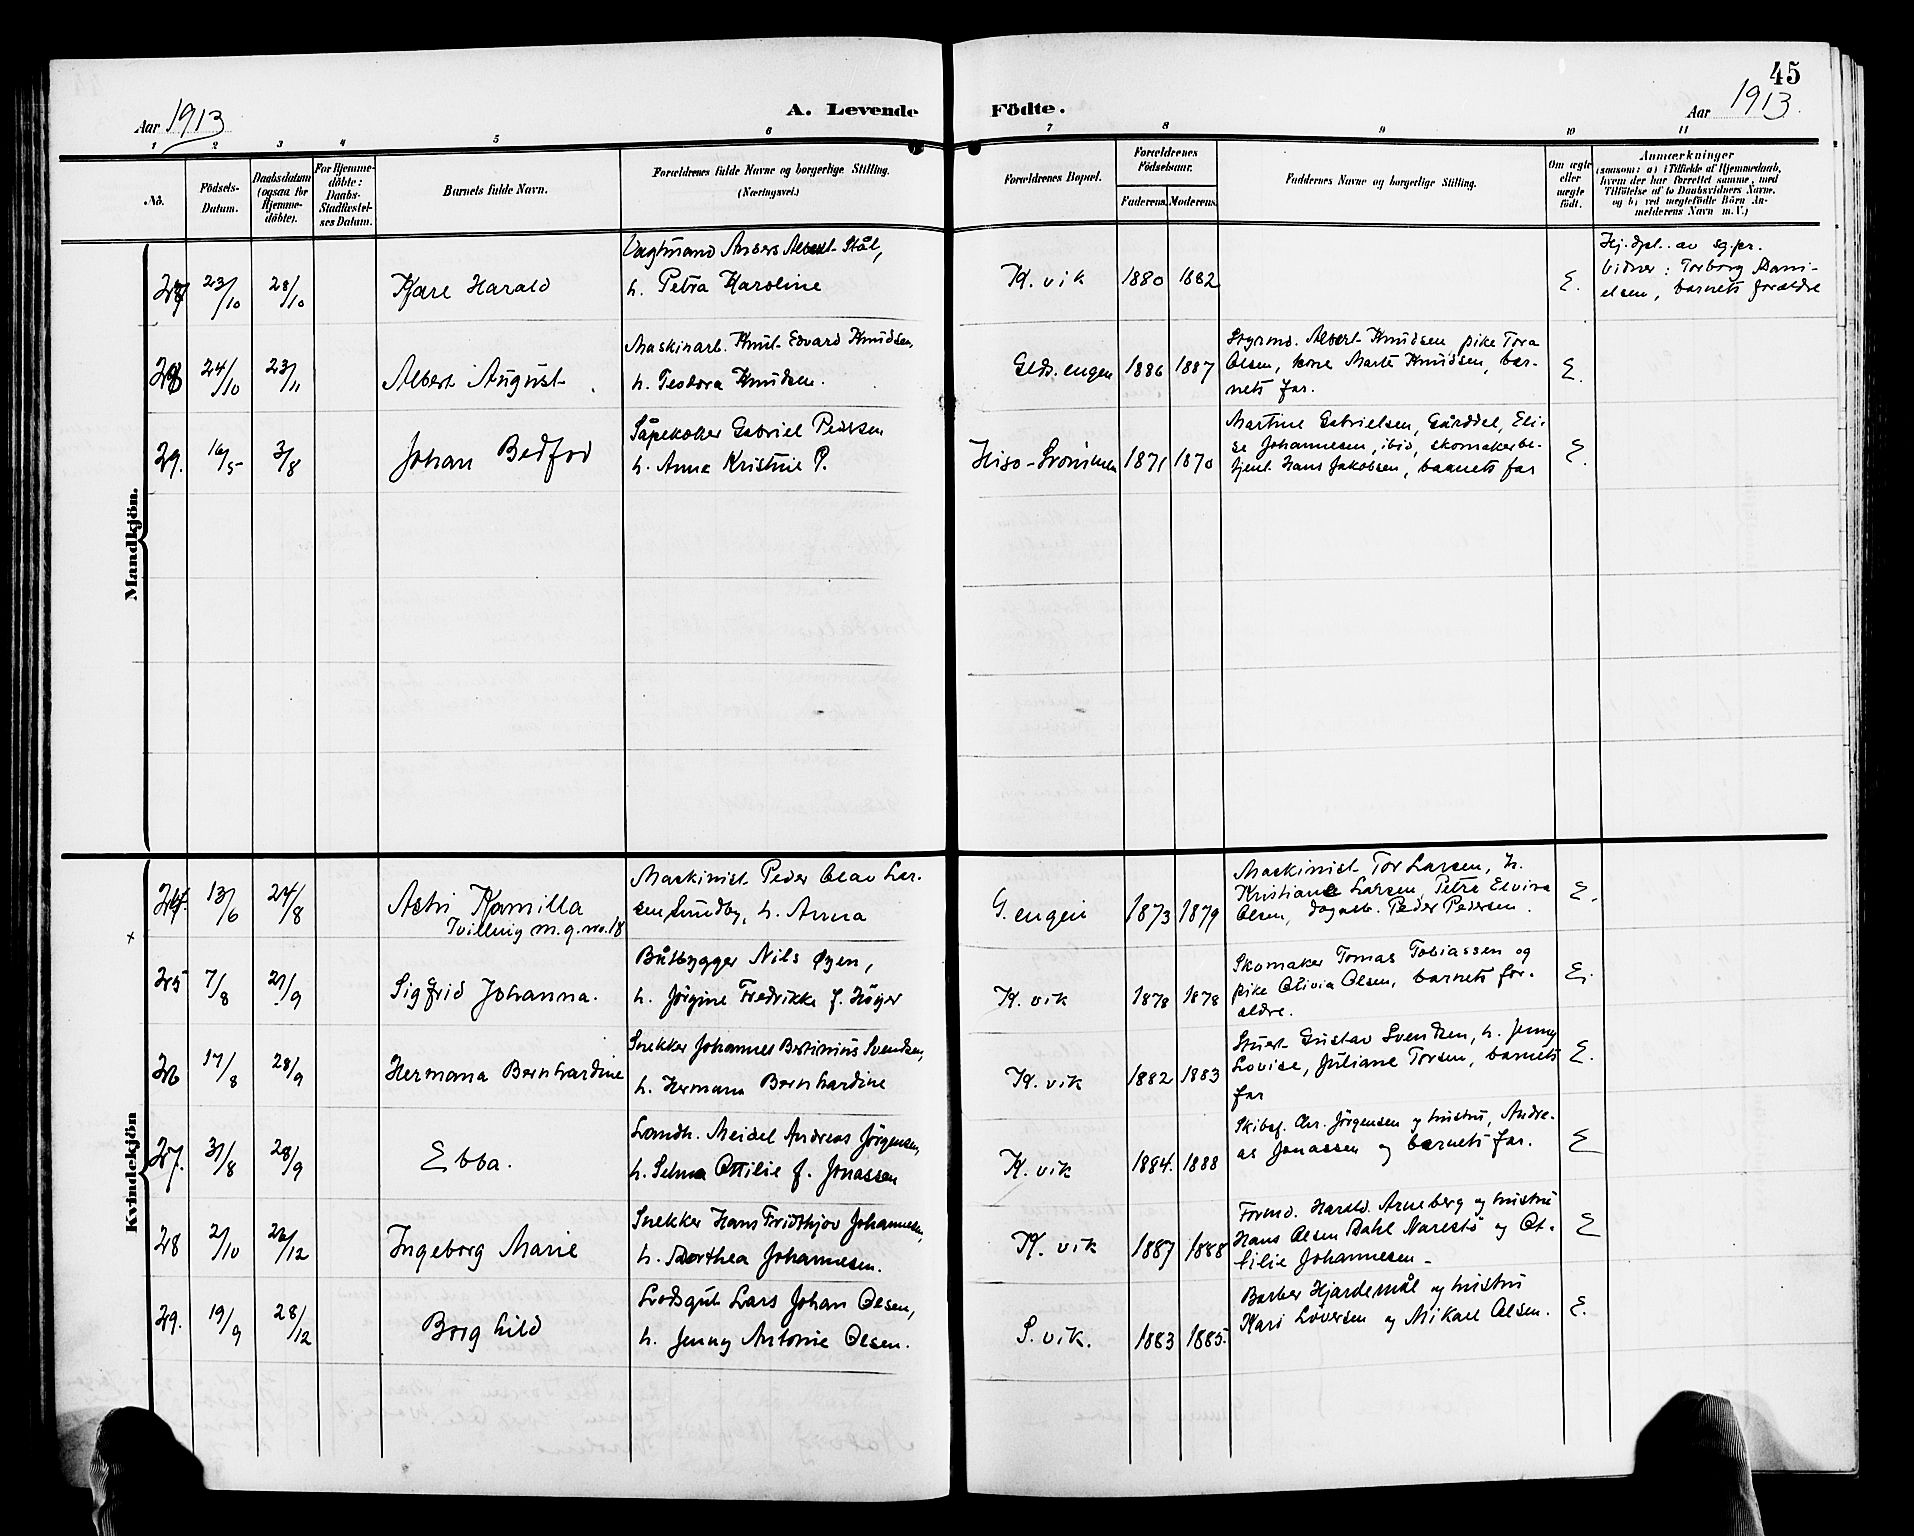 45
Aar 1913
A. Levende Födte.
Aar 1913.
1 2 3 4 5 6 7 8 9 10 11
No.
Födsels-
Datum.
Daabsdatum
(ogsaa for
Hjemme-
döbte).
For Hjemme-
döbte:
Daabs-
Stadfæstel-
ses Datum.
Barnets fulde Navn.
Forældrenes fulde Navne og borgerlige Stilling.
(Næringsvei.)
Forældrenes Bopæl.
Forældrenes
Födselsaar.
Faderens. Moderens.
Faddernes Navne og borgerlige Stilling.
Om ægte
eller
uægte
födt.
Anmærkninger
(saasom: a) i Tilfælde af Hjemmedaab,
hvem der har forrettet samme, med
Tilföielse af to Daabsvidners Navne,
og b) ved uægtefödte Börn An-
melderens Navn m. V.)
Mandkjön.
27 23/10 28/10
Kåre Harald
Vagtmand Anders Albert Stål,
h. Petra Karoline
K. vik 1880 1882
E.
Hj. dpt. av sg.pr.
Vidner: Torborg Dani-
elsen, barnets forældre
28 24/10 23/11
Albert August
Maskinarb. Knut Edvard Knudsen,
h. Teodora Knudsen.
Glds. engen 1886 1887
Styrmd. Albert Knudsen pike Tora
Olsen, kone Marte Knudsen, bar-
nets far.
E.
29. 16/5 3/8
Johan Bedford
Såpekoker Gabriel Pedersen
h. Anna Kristine P.
Hisø-Strömmen 1871 1870
Martine Gabrielsen, Gårddal, Eli-
se Johannesen, ibid, skomakerbe-
tjent Hans Jakobsen, barnets far
E.
Kvindekjön
24. 13/6 24/8
Astri Kamilla
Tvilling m. g. no. 18
Maskinist Peder Olav Lar-
sen Sundby, h. Anna
G. engen 1873 1879
Maskinist Tor Larsen, h.
Kristiane Larsen, Petra Elvira
Olsen, dagarb. Peder Pedersen.
E.
25 7/8 21/9
Sigfrid Johanna.
Båtbygger Nils Øyen,
h. Jørgine Fredrikke f. Höger
K. vik 1878 1878
Skomaker Tomas Tobiassen og
pike Olivia Olsen, barnets for-
ældre.
E.
26 17/8 28/9
Hermana Bernhardine
Snekker Johannes Bertinius Svendsen,
h. Hermana Bernhardine
K. vik 1882 1883
Stuert Gustav Svendsen, h. Jenny
Lovise, Juliane Torsen, barnets
far
E.
27. 31/8 28/9
Ebba.
Landh. Meidel Andreas Jörgensen,
h. Selma Ottilie f. Jonassen
K. vik 1884. 1888
Skibsf. Chr. Jörgensen og hustru, Andre-
as Jonassen og barnets far.
E
28 2/10 26/12
Ingeborg Marie
Snekker Hans Fridthjov Johannesen,
h. Dorthea Johannesen.
K. vik 1887 1888
Formd. Harald Arneberg og hustru
Hans Olsen Dahl Narestö og Ot-
tilie Johannesen
E
29. 19/9 28/12
Borghild
Lodsgut Lars Johan Olsen,
h. Jenny Antonie Olsen.
S. vik. 1883 1885.
Barber Hjardemål og hustru
Kari Löversen og Mikael Olsen.
E.